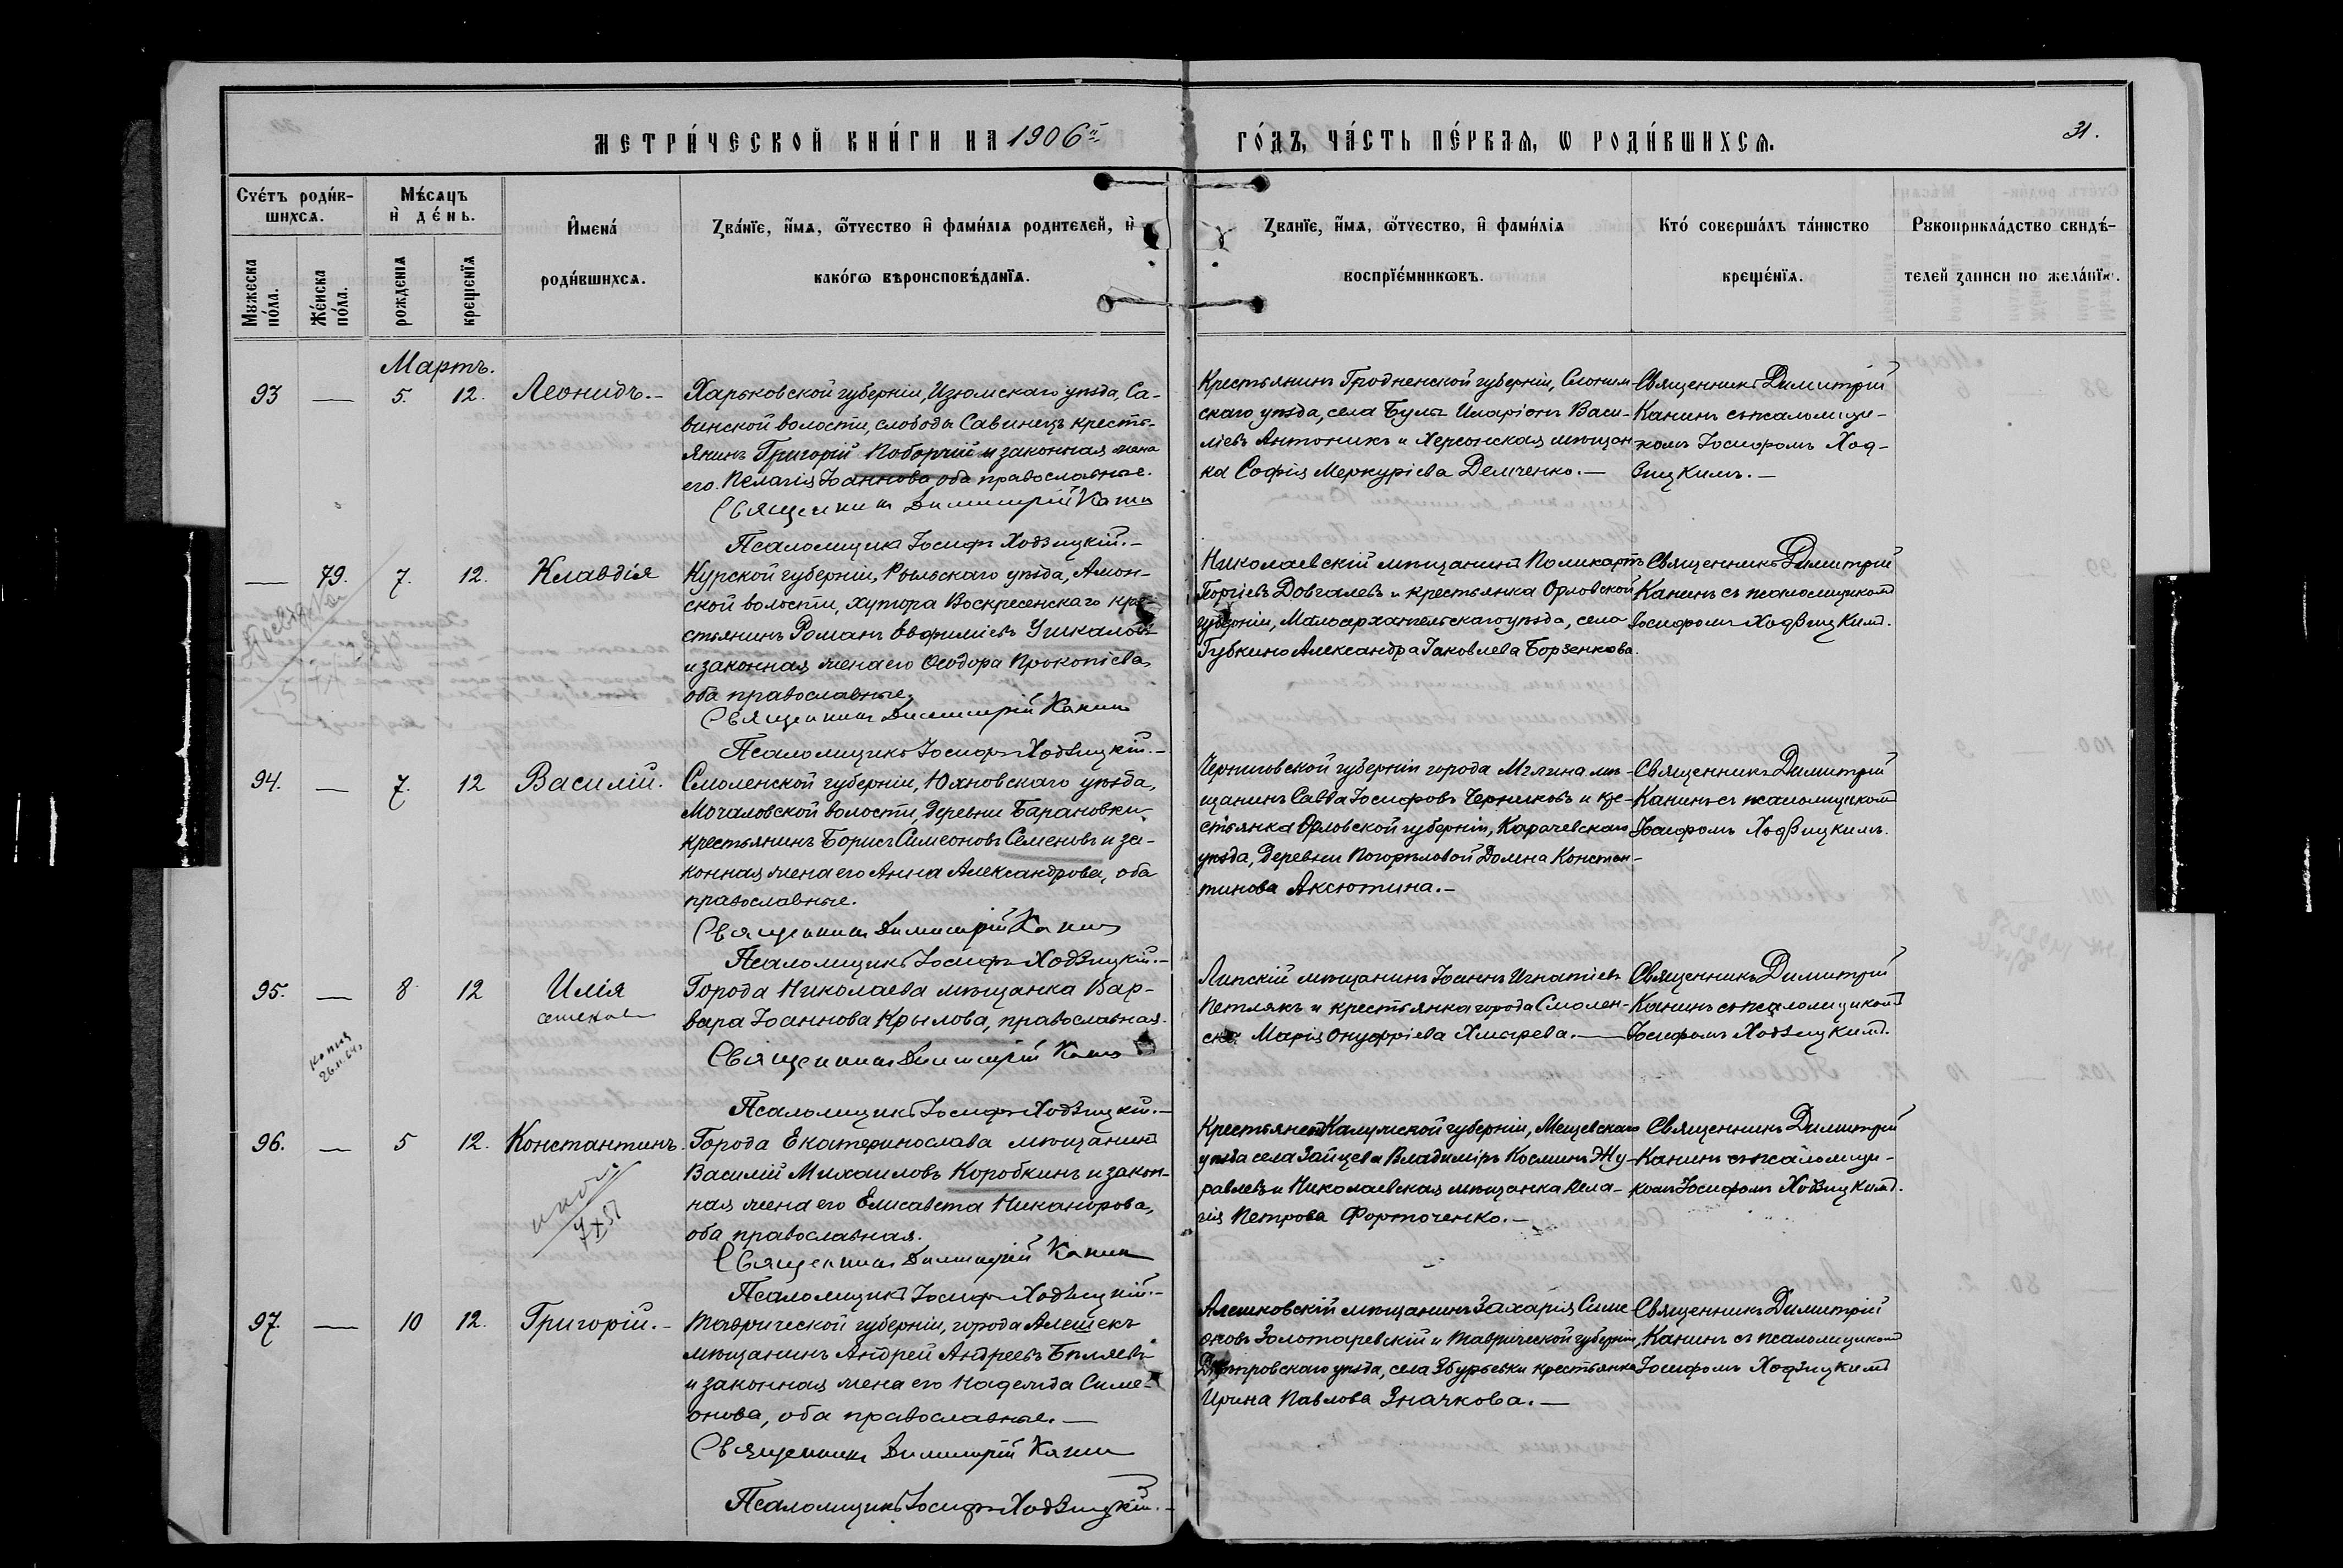 МЕТРИ́ЧЕСКОЙ КНИ́ГИ НА 1906й ГО́ДЪ, ЧА́СТЬ ПЕ́РВАЯ, Ѡ РОДИ́ВШИХСЯ.
31.
Сче́тъ роди́в-
шихся.
Мꙋжеска по́ла.
Же́нска по́ла.
Мѣ́сяцъ
и҆ де́нь.
рожденїя
крещенїя
И҆мена́
роди́вшихся.
Зва́нїе, и҆́мя, ѻ҆́тчество и҆ фами́лїя родителей, и҆
како́гѡ вѣроисповѣ́данїя.
Зва́нїе, и҆́мя, ѻ҆́тчество, и҆ фами́лїя
воспрїе́мникѡвъ.
Кто́ соверша́лъ та́инство
креще́нїя.
Рꙋкоприкла́дство свидѣ́-
телей записи по жела́нїю.
Мартъ.
93 — 5. 12. Леонидъ.—
Харьковской губерніи, Изюмскаго уѣзда, Са-
винской волости, слободы Савинецъ кресть-
янинъ Григорій Поборчій и законная жена
его Пелагія Іоаннова оба православные.
Священникъ Димитрій Канинъ
Псаломщикъ Іосифъ Ходзицкій.—
Крестьянинъ Гродненской губерніи, Слоним-
скаго уѣзда, села Булы Иларіонъ Васи-
ліевъ Антоникъ и Херсонская мѣщан-
ка Софія Меркуріева Демченко.—
Священникъ Димитрій
Канинъ съ псаломщи-
комъ Іосифомъ Ход-
зицкимъ.—
— 79. 7. 12. Клавдія
Курской губерніи, Рыльскаго уѣзда, Амон-
ской волости, хутора Воскресенскаго кре-
стьянинъ Романъ Евфиміевъ Ушкаловъ
и законная жена его Ѳеодора Прокопіева,
оба православные.
Священникъ Димитрій Канинъ
Псаломщикъ Іосифъ Ходзицкій.—
Николаевскій мѣщанинъ Поликарпъ
Георгіевъ Довгалевъ и крестьянка Орловской
губерніи, Малоархангельскаго уѣзда, села
Губкино Александра Іаковлева Борзенкова.
Священникъ Димитрій
Канинъ съ псаломщикомъ
Іосифомъ Ходзицкимъ.
94. — 7. 12 Василій.
Смоленской губерніи, Юхновскаго уѣзда,
Мочаловской волости, деревни Барановки
крестьянинъ Борисъ Симеоновъ Семеновъ и за-
конная жена его Анна Александрова, оба
православные.
Священникъ Димитрій Канинъ
Псаломщикъ Іосифъ Ходзицкій.—
Черниговской губерніи города Мглина мѣ-
щанинъ Савва Іосифовъ Черниковъ и кре-
стьянка Орловской губерніи, Карачевскаго
уѣзда, деревни Погорѣловой Домна Констан-
тинова Аксютина.—
Священникъ Димитрій
Канинъ съ псаломщикомъ
Іосифомъ Ходзицкимъ.
95. — 8 12 Илія
копия
26.11.64г.
Города Николаева мѣщанка Вар-
вара Іоаннова Крылова, православная.
Священникъ Димитрій Канинъ
Псаломщикъ Іосифъ Ходзицкій.—
Липскій мѣщанинъ Іоаннъ Игнатіевъ
Петлякъ и крестьянка города Смолен-
ска Марія Онуфріева Хмырева.—
Священникъ Димитрій
Канинъ съ псаломщикомъ
Іосифомъ Ходзицкимъ.
96. — 5 12. Константинъ.
Города Екатеринослава мѣщанинъ
Василій Михаиловъ Коробкинъ и закон-
ная жена его Елисавета Никанорова,
оба православная.
Священникъ Димитрій Канинъ
Псаломщикъ Іосифъ Ходзицкій.—
Крестьянинъ Калужской губерніи, Мещевскаго
уѣзда села Зайцева Владиміръ Косминъ Жу-
равлевъ и Николаевская мѣщанка Пела-
гія Петрова Форточенко.—
Священникъ Димитрій
Канинъ съ псаломщи-
комъ Іосифомъ Ходзицкимъ.
97. — 10 12. Григорій.—
Таврической губерніи, города Алешекъ
мѣщанинъ Андрей Андреевъ Бѣляевъ
и законная жена его Надежда Симе-
онова, оба православные.—
Священникъ Димитрій Канинъ
Псаломщикъ Іосифъ Ходзицкій.—
Алешковскій мѣщанинъ Захарія Симе-
оновъ Золотаревскій и Таврической губерніи,
Днѣпровскаго уѣзда, села Збурьевки крестьянка
Ирина Павлова Значкова.—
Священникъ Димитрій
Канинъ съ псаломщикомъ
Іосифомъ Ходзицкимъ